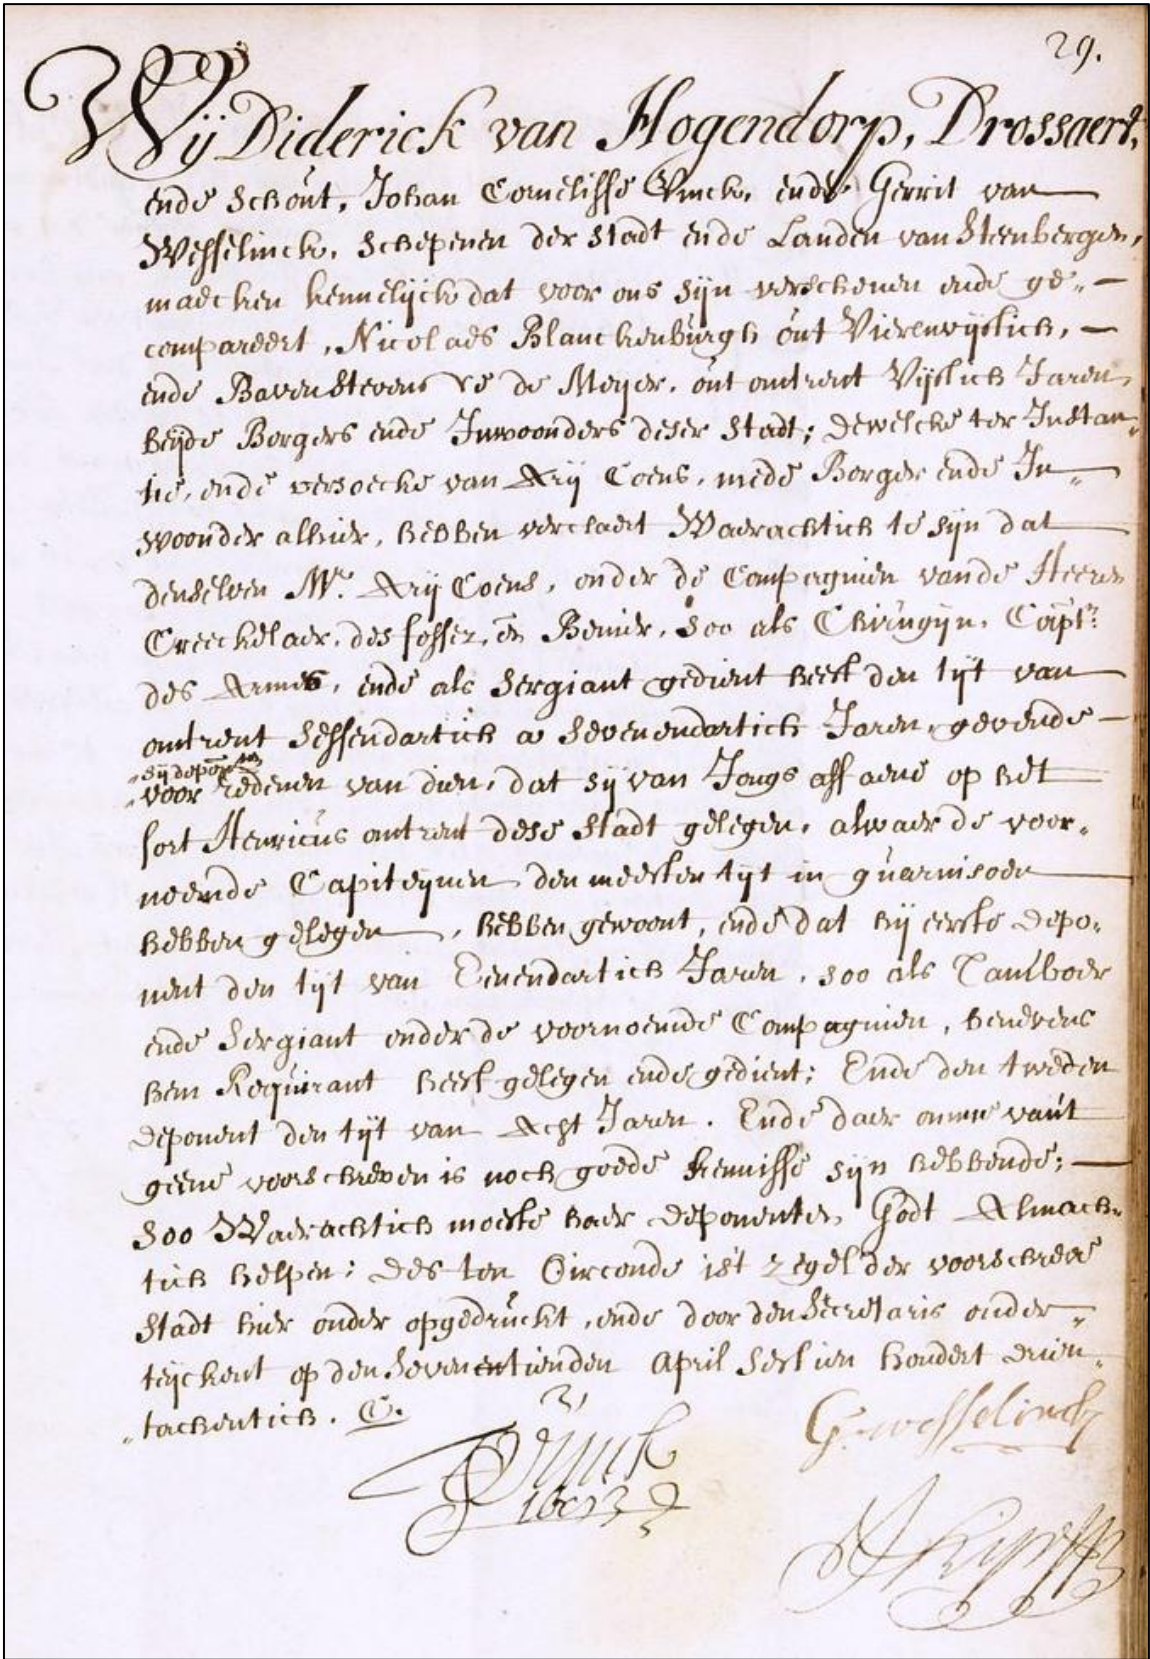 29.
Wij Diderick van Hogendorp, Drossaert,
ende Schout, Johan Cornelisse Vinck, ende Gerrit van
Wesselinck, Schepenen der Stadt ende Landen van Steenbergen,
maecken kennelijck dat voor ons sijn verschenen ende ge„
compareert, Nicolaes Blanckenburgh out Vierenvijftich,
ende Baven Stevens de Meyer, out omtrent Vijftich Jaren,
beijde Borgers ende Inwoonders deser Stadt; dewelcke ter Instan„
tie, ende versoecke van Arij Coens, mede Borger ende In„
woonder alhier, hebben verclaert Waerachtich te sijn dat
denselven Mr. Arij Coens, onder de Compagnien vande Heeren
Creeckelaer, des fossez, en Benier, soo als Chirugijn, Capt:
des Armes, ende als Sergiant gedient heeft den tijt van
omtrent Sessendartich a Sevenendartich Jaren, gevende
„sij depon.ten
„voor redenen van dien, dat sij van Jongs aff aene op het
fort Henricus omtrent dese Stadt gelegen, alwaer de voor„
noemde Capiteijnen den meesten tijt in guarnisoen
hebben gelegen, hebben gewoont, ende dat hij eerste depo„
nent den tijt van Eenendartich Jaren, soo als Tamboer
ende Sergiant onder de voornoemde Compagnien, benevens
hem Requirant heeft gelegen ende gedient; Ende den tweden
deponent den tijt van Acht Jaren. Ende daer omme vant
geene voorschreven is noch goede kennisse sijn hebbende;
Soo Waerachtich moeste haer deponenten Godt Almach„
tich helpen; des ten Oirconde is't zegel der voorschreve
Stadt hier onder opgedruckt, ende door den Secretaris onder„
teijckent op den Seventienden April Sestien hondert drien„
„tachentich.
Vinck
1683
G. wesselinck